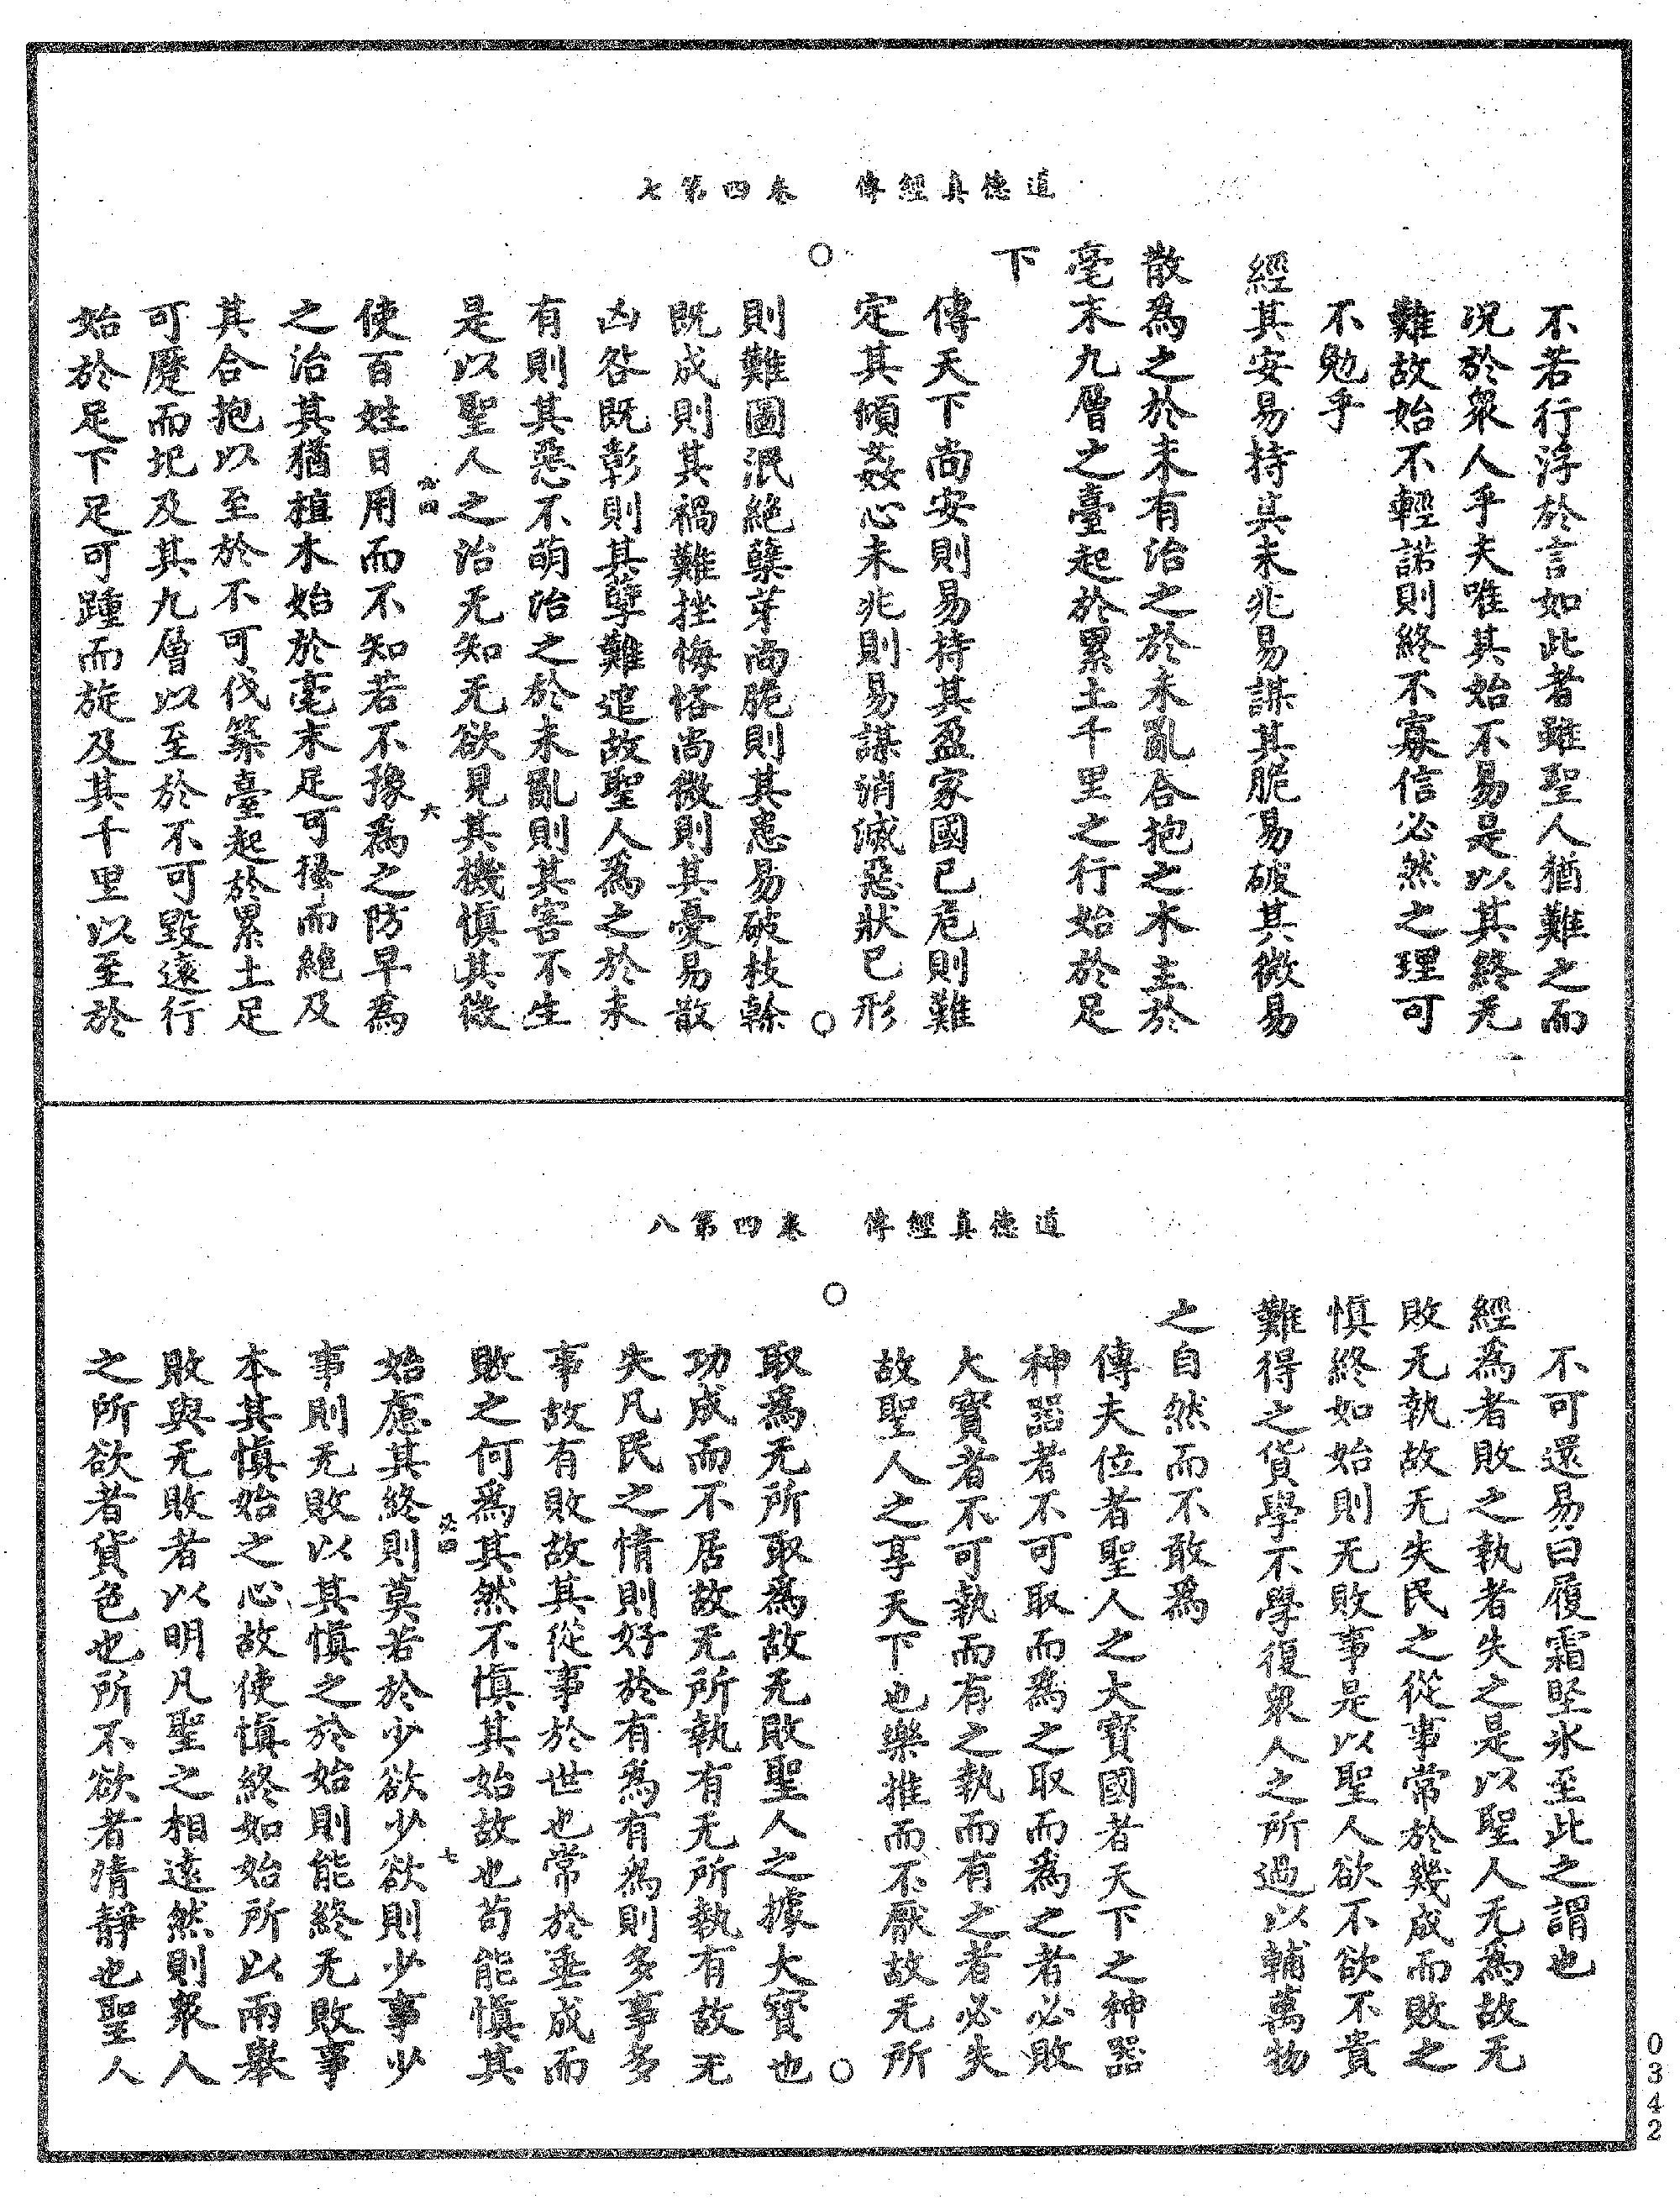 道德真經傳　卷四第七
不若行浮於言如此者雖聖人猶難之而
況於衆人乎夫唯其始不易是以其終无
難故始不輕諾則終不寡信必然之理可
不勉乎
經其安易持其未兆易謀其脆易破其微易
散爲之於未有治之於未亂合抱之木生於
毫末九層之臺起於累土千里之行始於足
下
傳天下尚安則易持其盈家國已危則難
定其傾姦心未兆則易謀消滅惡狀已形
則難圖泯絕蘖芽尚脆則其患易破枝幹
既成則其禍難挫悔悋尚微則其憂易散
凶咎既彰則其孽難逭故聖人爲之於未
有則其惡不萌治之於未亂則其害不生
是以聖人之治无知无欲見其機慎其微
使百姓日用而不知若不豫爲之防早爲
之治其猶植木始於毫末足可搔而絕及
其合抱以至於不可伐築臺起於累土足
可蹙而圮及其九層以至於不可毀遠行
始於足下足可踵而旋及其千里以至於
道德真經傳　卷四第八
不可還易曰履霜堅氷至此之謂也
經爲者敗之執者失之是以聖人无爲故无
敗无執故无失民之從事常於幾成而敗之
慎終如始則无敗事是以聖人欲不欲不貴
難得之貨學不學復衆人之所過以輔萬物
之自然而不敢爲
傳夫位者聖人之大寳國者天下之神器
神器者不可取而爲之取而爲之者必敗
大寳者不可執而有之執而有之者必失
故聖人之享天下也樂推而不厭故无所
取爲无所取爲故无敗聖人之據大寳也
功成而不居故无所執有无所執有故无
失凡民之情則好於有爲有爲則多事多
事故有敗故其從事於世也常於垂成而
敗之何爲其然不慎其始故也苟能慎其
始慮其終則莫若於少欲少欲則少事少
事則无敗以其慎之於始則能終无敗事
本其慎始之心故使慎終如始所以兩舉
敗與无敗者以明凡聖之相遠然則衆人
之所欲者貨色也所不欲者清靜也聖人
0342